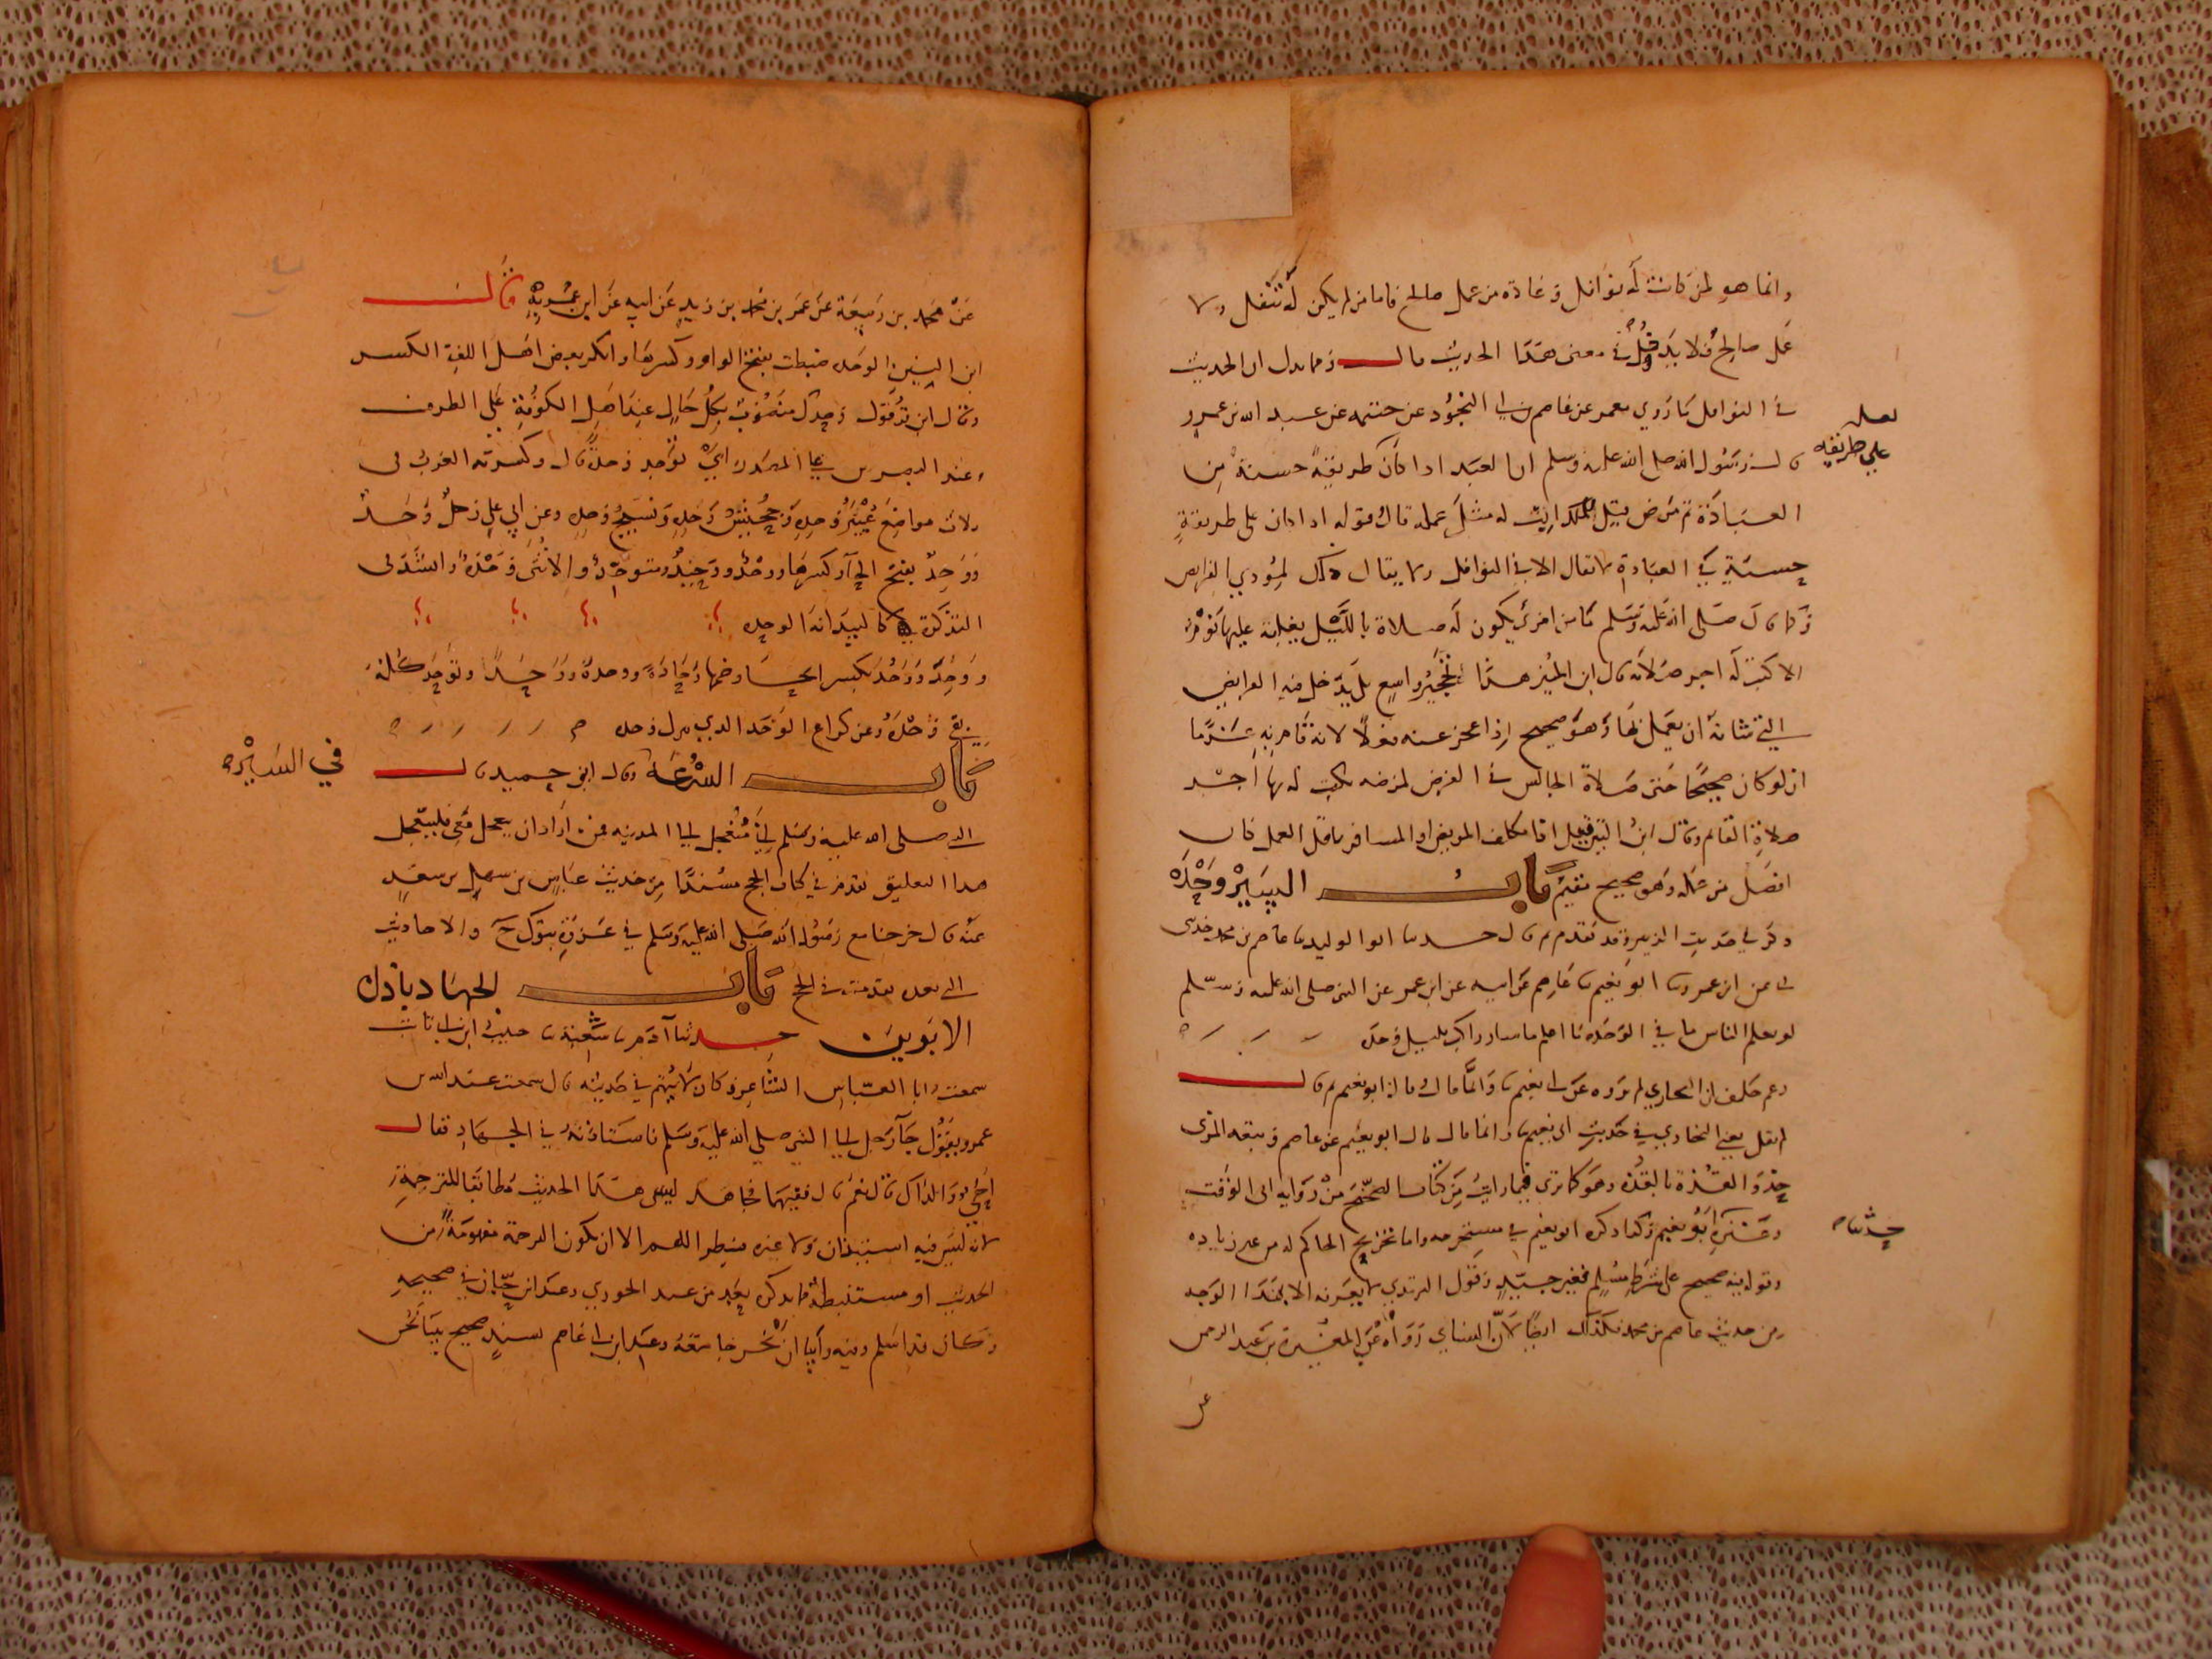 وانما هو لمن كانت له نوافل وعادة من عمل صالح فاما من لم يكن له تنفل ولا
عمل صالح فلا يدخل في معنى هذا الحديث قال ومما يدل ان الحديث
في النوافل ما روي معمر عن عاصم بن ابي النجود عن خيثمة عن عبد الله بن عمرو
لعله
على طريقه
قال رسول الله صلى الله عليه وسلم ان العبد اذا كان طريقة حسنة من
العبادة ثم مرض قيل للملك اكتب له مثل عمله قال فقوله اذا كان على طريقة
حسنة في العبادة لا تقال الا في النوافل ولا يقال ذلك لمؤدي الفرايض
وكما قال صلى الله عليه وسلم ما من امرئ يكون له صلاة بالليل يغلبه عليها نوم
الا كتب له اجر صلاته قال ابن المنير هذا تحجير واسع بل يدخل فيه الفرايض
التي شانه ان يعمل بها وهو صحيح اذا عجز عنه فعلا لانه قام به عزما
ان لو كان صحيحا حتى صلاة الجالس في الفرض لمرضه يكتب له بها اجر
صلاة القائم وقال ابن التين قيل اذا تكلف المريض او المسافر العمل كان
افضل من عمله وهو صحيح مقيم باب السير وحده
ذكر فيه حديث الزبير وقد تقدم ثم قال حدثنا ابو الوليد ثنا عاصم بن محمد حدثني
ابي عن ابن عمر وثنا ابو نعيم ثنا عاصم عن ابيه عن ابن عمر عن النبي صلى الله عليه وسلم
لو يعلم الناس ما في الوحدة ما اعلم ما سار راكب بليل وحده
زعم خلف ان البخاري لم يروه عن ابي نعيم وانما قال وقال ابو نعيم ثم قال
لم يقل يعني البخاري في حديث ابي نعيم ثنا وانما قال قال ابو نعيم عن عاصم وتبعه المزي
حذو القذة بالقذة وهو كما تري فيما رايت من كتاب الصحيح من رواية ابي الوقت
حدثنا
وغيره ابو نعيم وكذا ذكره ابو نعيم في مستخرجه واما تخريج الحاكم له من غير زيادة
وقوله فيه صحيح على شرط مسلم فغير جيد وقول الترمذي لا يعرفه الا بهذا الوجه
من حديث عاصم بن محمد فكذلك ايضا لان النسائي رواه عن المغيرة بن عبد الرحمن
عن
عن محمد بن ربيعة عن عمر بن محمد بن زيد عن ابيه عن ابن عمر به قال
ابن التين الوحده ضبطت بفتح الواو وكسرها وانكر بعض اهل اللغة الكسر
وقال ابن قرقول وحدك منصوب بكل حال عند اهل الكوفة على الظرف
وعند البصريين على المصدر اي توحد وحده قال وكسرته العرب في
ثلاث مواضع عيير وحده وجحيش وحده ونسيج وحده وعن ابي علي رجل وحد
ووحد بفتح الحآ وكسرها ووحد ووحيد ومتوحد والانثى وحدة واستدل في
التذكرة بيت كالبيدانة الوحده
ووحد ووحد بكسر الحاء وضمها وحادة ووحدة ووحدا وتوحد كله
بقي وحده وعن كراع الوحد الذي ينزل وحده
باب السرعة وقال ابو حميد قال
في السيره
النبي صلى الله عليه وسلم اني متعجل الى المدينة فمن اراد ان يعجل معي فليتعجل
هذا التعليق تقدم في كتاب الحج مسندا من حديث عباس بن سهل بن سعد
عنه قال خرجنا مع رسول الله صلى الله عليه وسلم في غزوة تبوك ح والاحاديث
التي بعده تقدمت في الحج باب الجهاد باذن
الابوين حدثنا آدم ثنا شعبة ثنا حبيب ابن ابي ثابت
سمعت ابا العباس الشاعر وكان لا يتهم في حديثه قال سمعت عبد الله بن
عمرو يقول جآ رجل الى النبي صلى الله عليه وسلم فاستاذنه في الجهاد فقال
احي والداك قال نعم قال ففيهما فجاهد ليس هذا الحديث مطابقا للترجمة
لانه ليس فيه استيذان ولا غيره فينظر اللهم الا ان تكون الترجمة مفهومة من
الحديث او مستنبطة
وكان قد اسلم وعند ابن ابي عاصم بسند صحيح